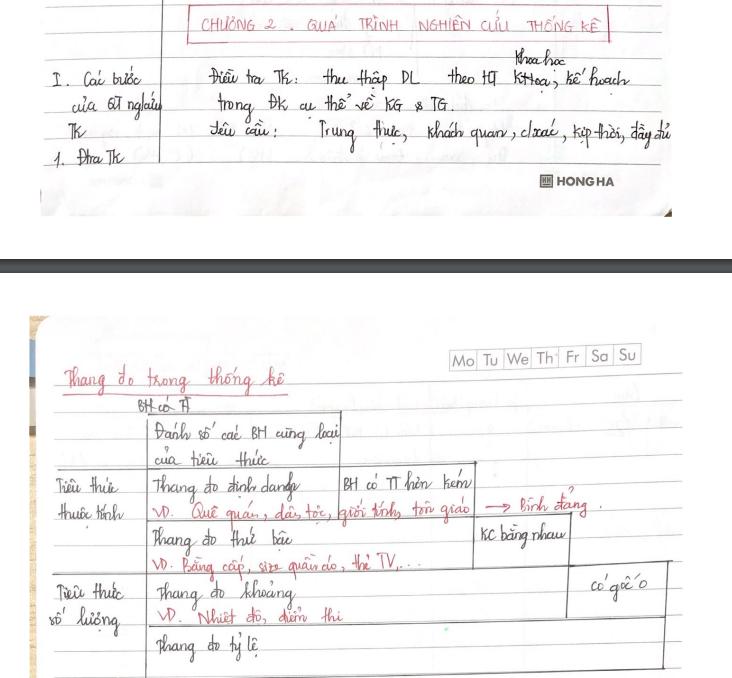 CHƯƠNG 2. QUÁ TRÌNH NGHIÊN CỨU THỐNG KÊ
khoa học
I. Các bước
Điều tra TK: thu thập DL theo KHoạ, kế hoạch
của QT ngcứu
trong ĐK cụ thể về KG & TG.
TK
Yêu cầu: Trung thực, khách quan, c/xác, kịp thời, đầy đủ
1. Đtra TK
HH HONG HA
Mo Tu We Th Fr Sa Su
Thang đo trong thống kê
BH có TT
Đánh số các BH cùng loại
của tiêu thức
Tiêu thức
Thang đo định danh
BH có TT hơn kém
thuộc tính
VD. Quê quán, dân tộc, giới tính, tôn giáo → Bình đẳng.
Thang đo thứ bậc
KC bằng nhau
VD. Bằng cấp, size quần áo, thẻ TV,...
Tiêu thức
Thang đo khoảng
có gốc 0
số lượng
VD. Nhiệt độ, điểm thi
Thang đo tỷ lệ